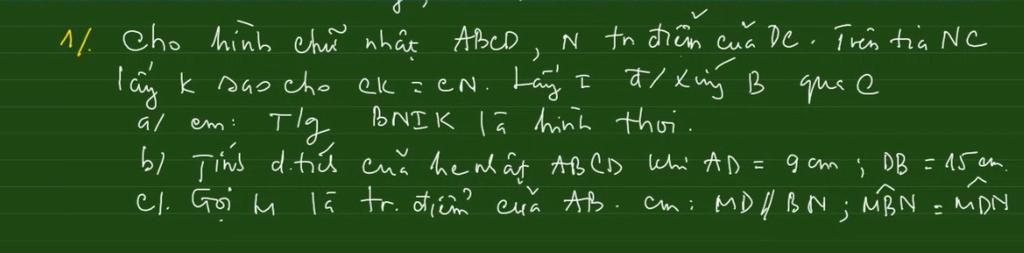 1/. Cho hình chữ nhật ABCD, N tr điểm của DC. Trên tia NC
lấy K sao cho CK = CN. Lấy I đ/xứng B qua C
a/ cm: T/g BNIK là hình thoi.
b) Tính d.tích của hc nhật ABCD khi AD = 9 cm; DB = 15 cm.
c/. Gọi M là tr. điểm của AB. cm: MD // BN; MBN̂ = MDN̂